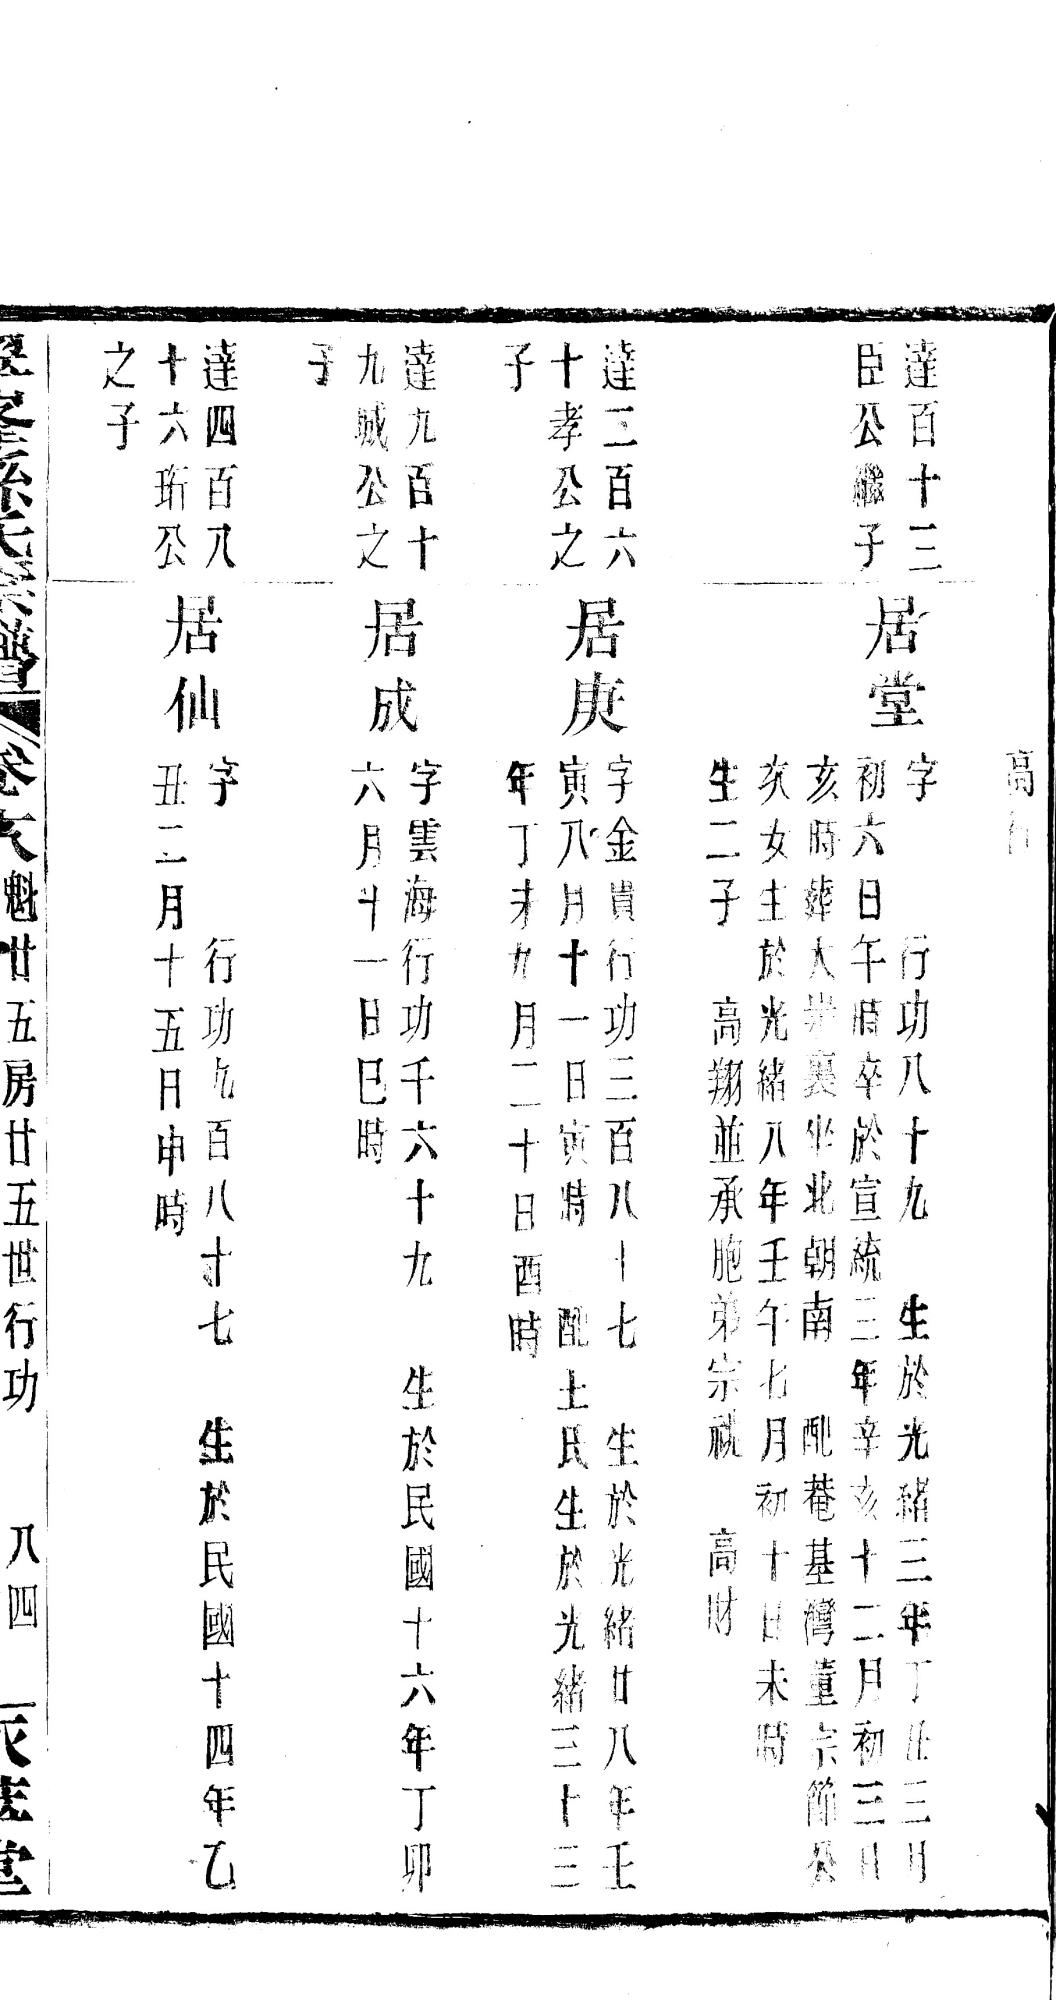 高行
達百十三
臣公繼子
居堂
字　行功八十九　生於光緒三年丁丑三月
初六日午時卒於宣統三年辛亥十二月初三日
亥時葬大崇裏坐北朝南　配菴基灣董宗節公
次女生於光緒八年壬午七月初十日未時
生二子　高翔並承胞弟宗祧　高財
達三百六
十孝公之
子
居庚
字金貴行功三百八十七　生於光緒廿八年壬
寅八月十一日寅時　配土氏生於光緒三十三
年丁未九月二十日酉時
達九百十
九城公之
子
居成
字雲海行功千六十九　生於民國十六年丁卯
六月廿一日巳時
達四百八
十六珩公
之子
居仙
字　行功九百八十七　生於民國十四年乙
丑二月十五日申時
孫氏宗譜　卷六魁廿五房廿五世行功　八四　堂